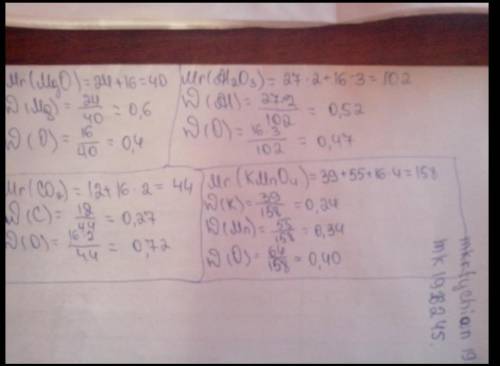 Mr(MgO)=24+16=40
W(Mg)= 24/40 = 0,6
W(O)= 16/40 = 0,4
Mr(Al2O3)=27·2+16·3=102
W(Al)= 27·2/102 = 0,52
W(O)= 16·3/102 = 0,47
Mr(CO2)=12+16·2=44
W(C)= 12/44 = 0,27
W(O)= 16·2/44 = 0,72
Mr(KMnO4)=39+55+16·4=158
W(K)= 39/158 = 0,24
W(Mn)= 55/158 = 0,34
W(O)= 64/158 = 0,40